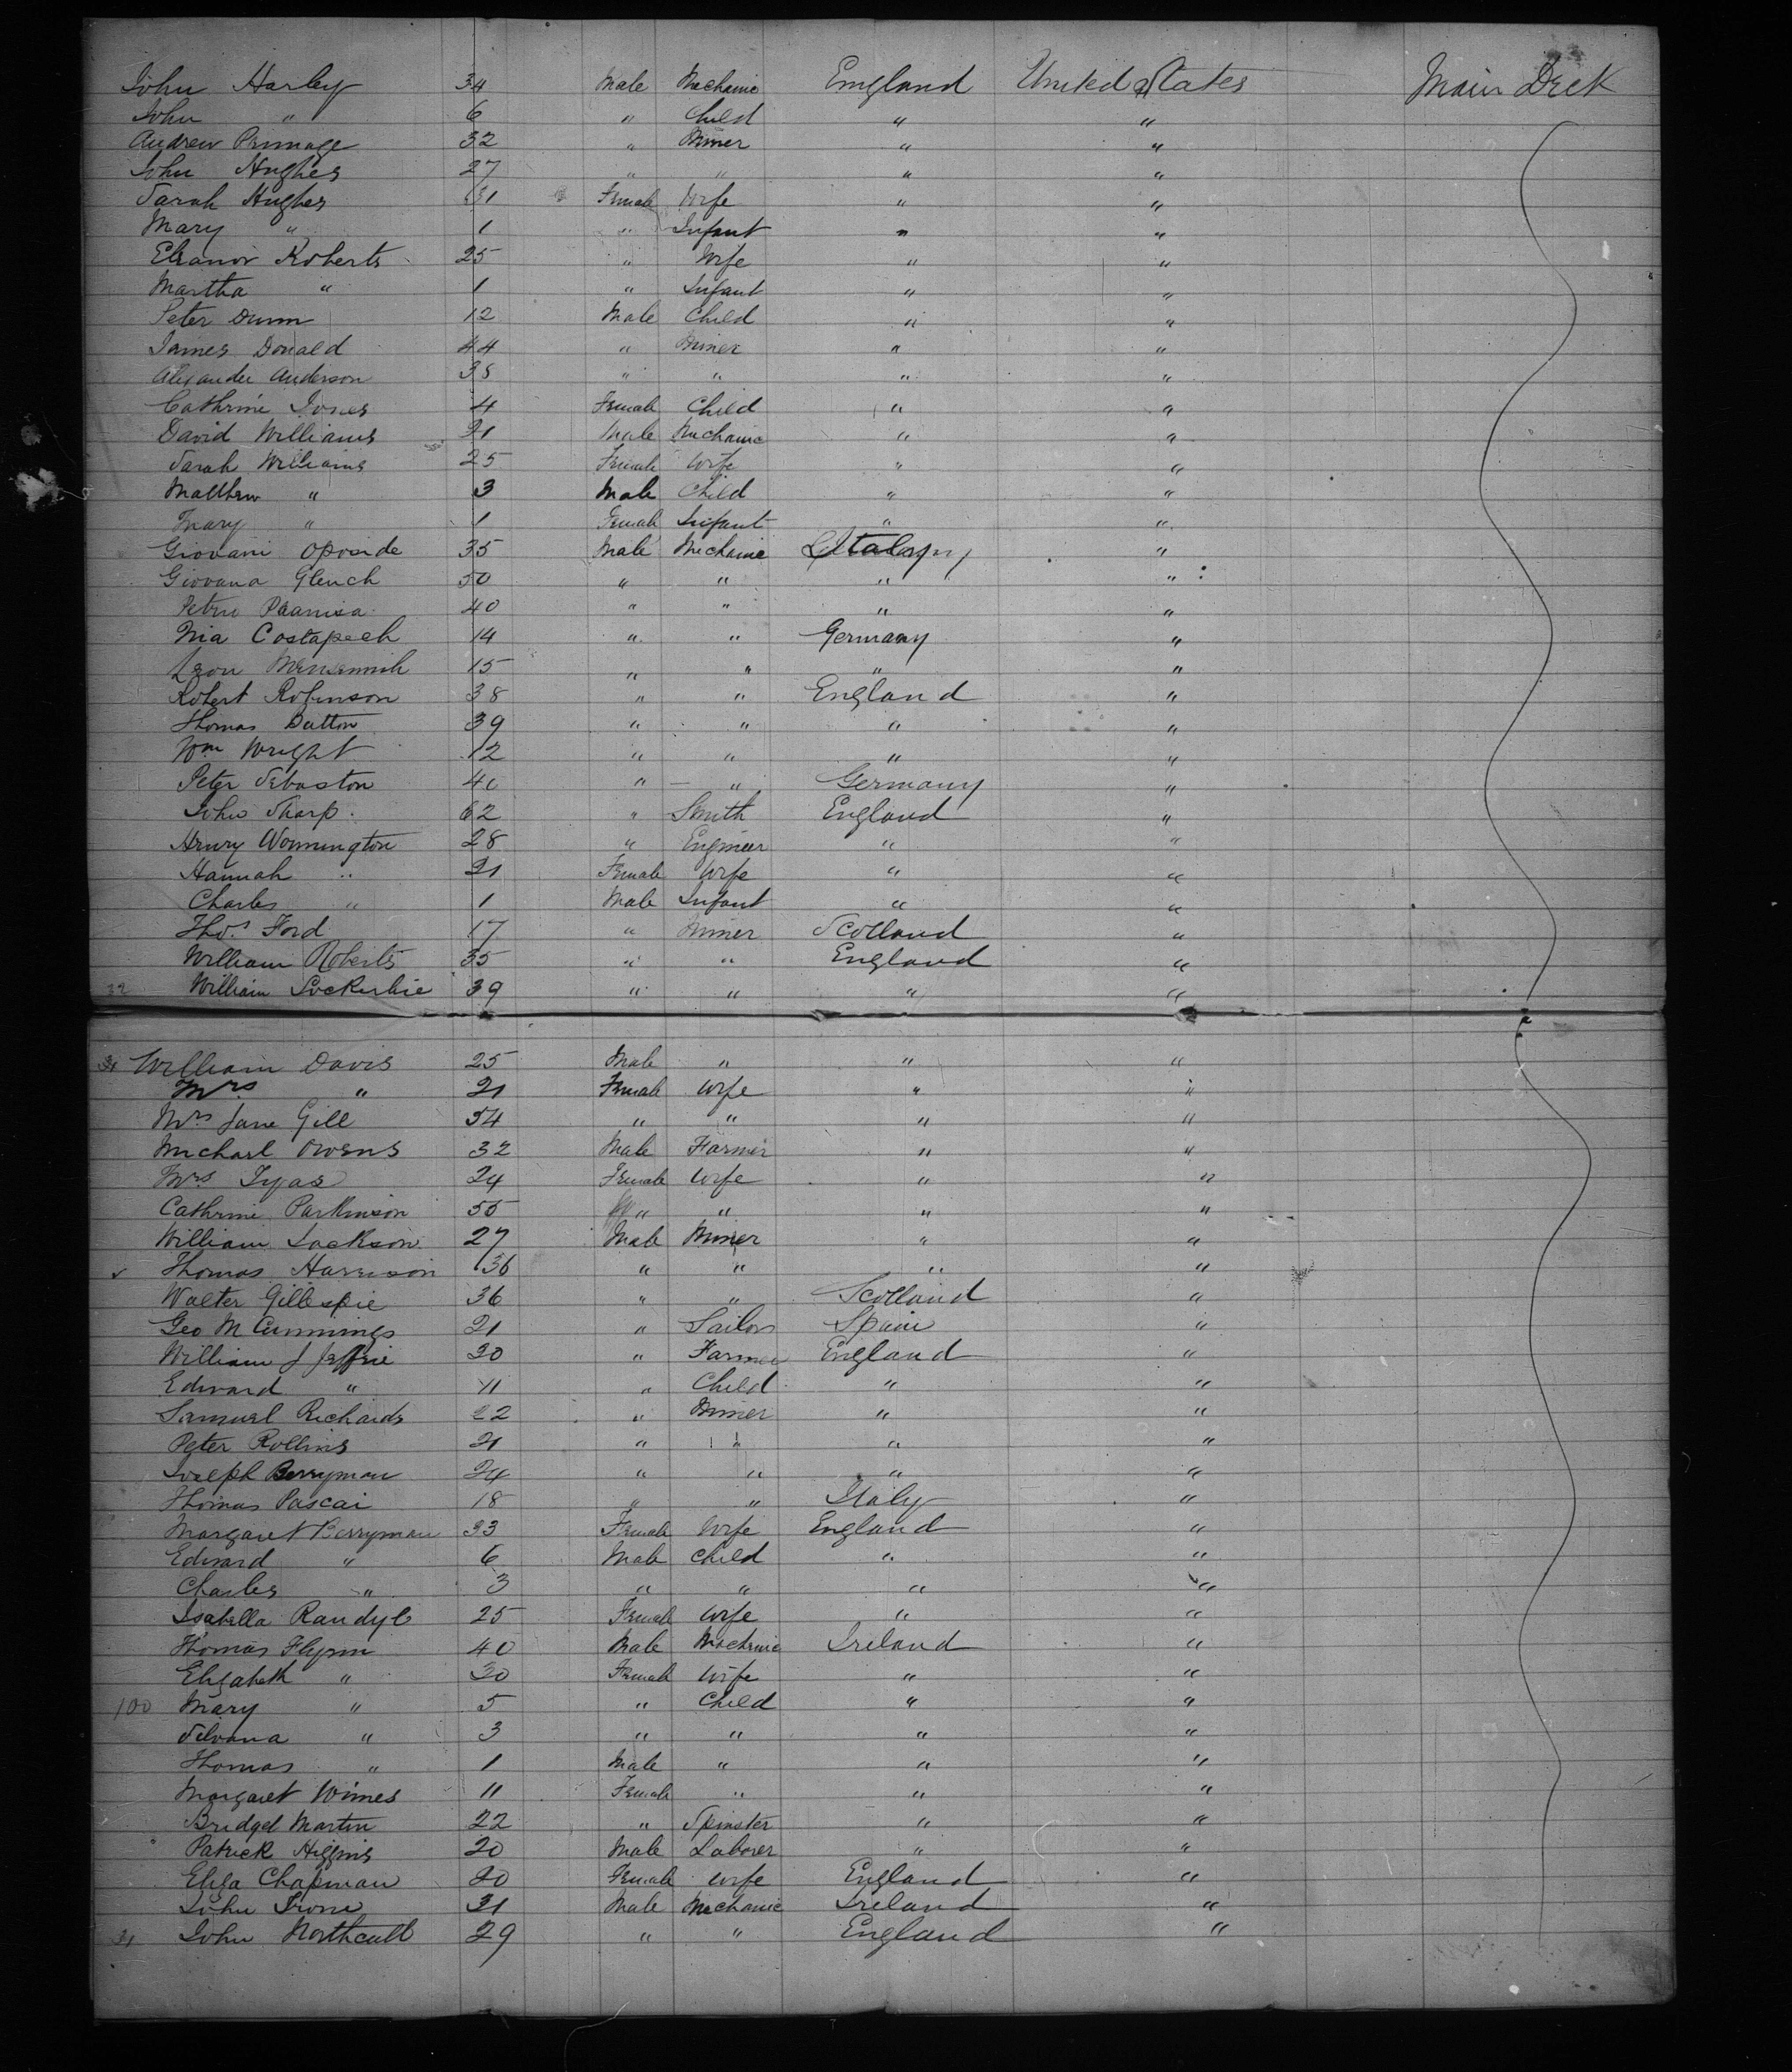 John Harley 34 Male Mechanic England United States Main Deck
John " 6 " Child " "
Andrew Primage 32 " Miner " "
John Hughes 27 " " " "
Sarah Hughes 31 Female Wife " "
Mary " 1 " Infant " "
Eleanor Roberts 25 " Wife " "
Martha " 1 " Infant " "
Peter Dunn 12 Male Child " "
James Donald 44 " Miner " "
Alexander Anderson 38 " " " "
Cathrine Jones 4 Female Child " "
David Williams 31 Male Mechanic " "
Sarah Williams 25 Female Wife " "
Matthew " 3 Male Child " "
Mary " 1 Female Infant " "
Giovani 35 Male Mechanic Italy "
Giovana Glench 50 " " " "
Paanisa 40 " " " "
Costapech 14 " " Germany "
Leon 15 " " " "
Robert Robinson 38 " " England "
Thomas Dutton 39 " " " "
Wm Wright 12 " " " "
Peter Sebaston 40 " " Germany "
John Sharp 62 " Smith England "
Henry Wonnington 28 " Engineer " "
Hannah " 21 Female Wife " "
Charles " 1 Male Infant " "
Thos. Ford 17 " Miner Scotland "
William Roberts 35 " " England "
32 William Lockerbie 39 " " " "
31 William Davis 25 Male " " "
Mrs " 21 Female Wife " "
Mrs Jane Gill 54 " " " "
Michael Owens 32 Male Farmer " "
Mrs Tyas 24 Female Wife " "
Cathrine Parkinson 55 " " " "
William Jackson 27 Male Miner " "
Thomas Harrison 36 " " " "
Walter Gillespie 36 " " Scotland "
Geo M Cummings 21 " Sailor Spain "
William J Jeffrie 30 " Farmer England "
Edward " 11 " Child " "
Samuel Richards 22 " Miner " "
Peter Rollins 21 " " " "
Joseph Berryman 24 " " " "
Thomas Pascai 18 " " Italy "
Margaret Berryman 33 Female Wife England "
Edward " 6 Male Child " "
Charles " 3 " " " "
Isabella Randyl 25 Female Wife " "
Thomas Flynn 40 Male Mechanic Ireland "
Elizabeth " 30 Female Wife " "
100 Mary " 5 " Child " "
Silvana " 3 " " " "
Thomas " 1 Male " " "
Margaret Wimes 11 Female " " "
Bridget Martin 22 " Spinster " "
Patrick Higgins 20 Male Laborer " "
Eliza Chapman 20 Female Wife England "
John Irone 31 Male Mechanic Ireland "
31 John Northcutt 29 " " England "